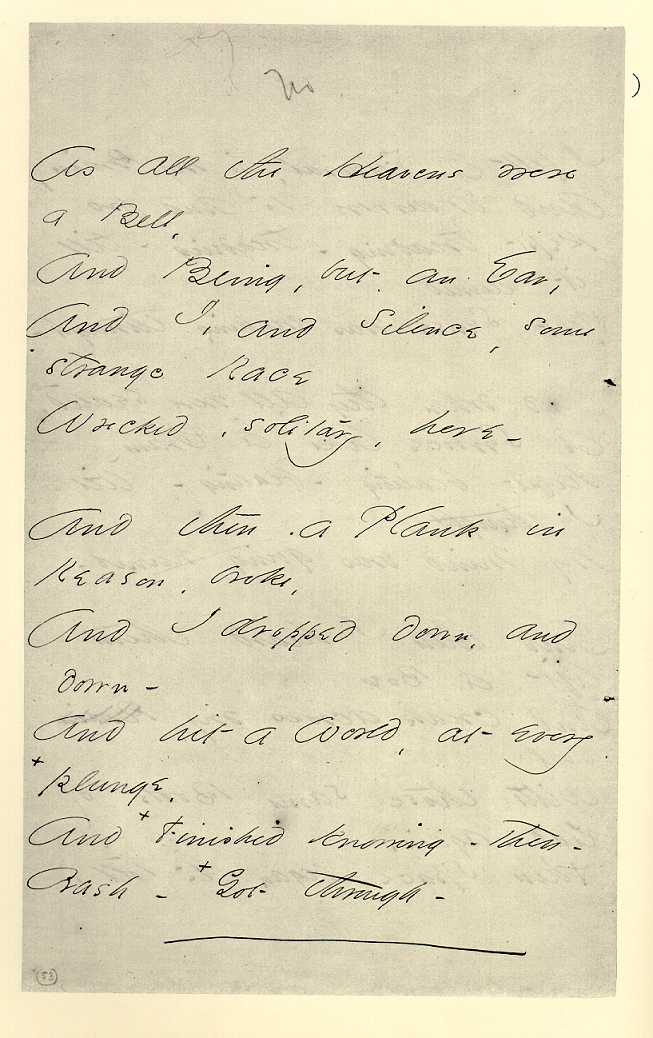 As all the Heavens were
a Bell,
And Being, but an Ear,
And I, and Silence, some
strange Race
Wrecked, solitary, here -
And then a Plank in
Reason, broke,
And I dropped down, and
down -
And hit a World, at every
+ Plunge,
And + Finished knowing - then -
Crash - + Got through -